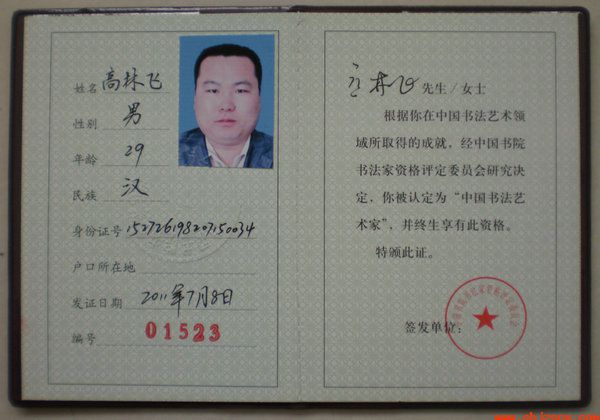 姓名 高林飞
性别 男
年龄 29
民族 汉
身份证号 152726198207150034
户口所在地
发证日期 2011年7月8日
编号 01523
高林飞 先生/女士
根据你在中国书法艺术领
域所取得的成就，经中国书院
书法家资格评定委员会研究决
定，你被认定为“中国书法艺
术家”，并终生享有此资格。
特颁此证。
签发单位：